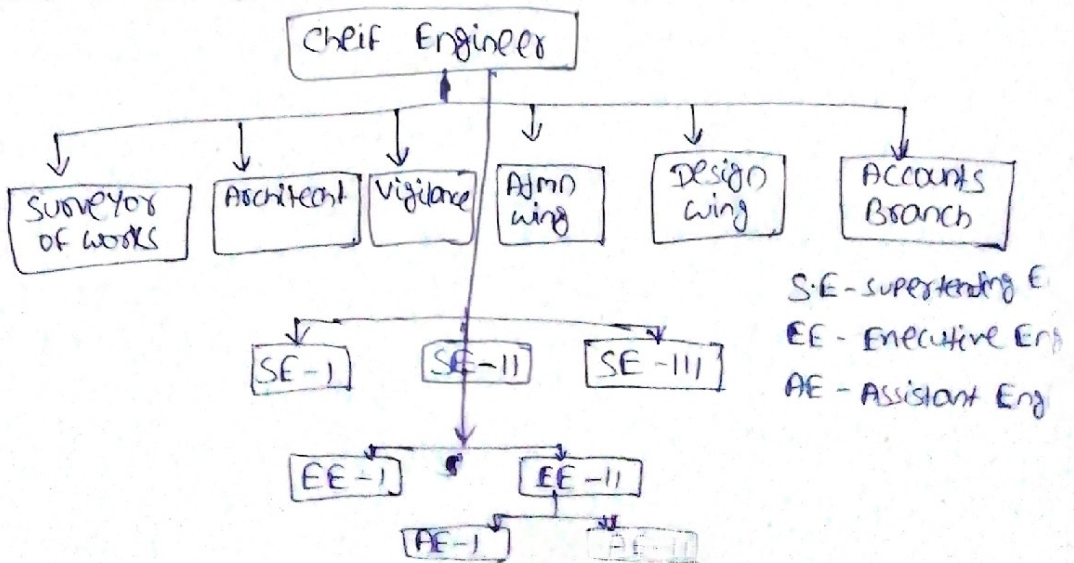 Cheif Engineer
Surveyor
of works
Architecht
Vigilance
Admn
wing
Design
wing
Accounts
Branch
S.E - supertending E
EE - Executive Eng
AE - Assistant Eng
SE-I
SE-II
SE-III
EE-I
EE-II
AE-I
AE-II